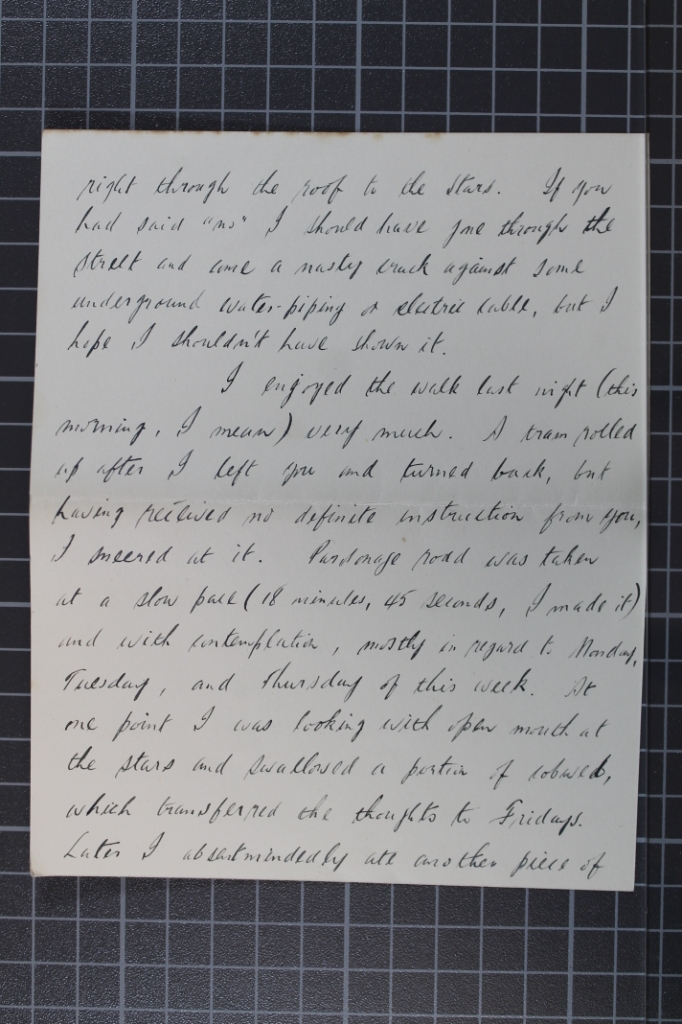 right through the roof to the stars. If you
had said "no" I should have gone through the
street and come a nasty crack against some
underground water-piping or electric cable, but I
hope I shouldn't have shown it.
I enjoyed the walk last night (this
morning, I mean) very much. A tram rolled
up after I left you and turned back, but
having received no definite instruction from you,
I sneered at it. Parsonage road was taken
at a slow pace (18 minutes, 45 seconds, I made it)
and with contemplation, mostly in regard to Monday,
Tuesday, and Thursday of this week. At
one point I was looking with open mouth at
the stars and swallowed a portion of cobweb,
which transferred the thoughts to Fridays.
Later I absentmindedly ate another piece of